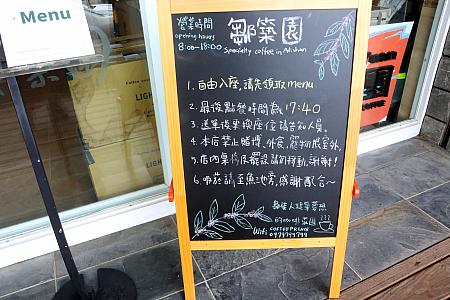 Menu
營業時間
opening hours
8:00-18:00
鄒築園
Specialty coffee in Alishan
1. 自由入座,請先領取menu.
2. 最後點餐時間為17:40
3. 送單後更換座位請告知人員.
4. 本店禁止賭博、外食,寵物限室外.
5. 店內桌椅及擺設請勿移動,謝謝!
6. 吸菸請至魚池旁,感謝配合~
莊園
Wifi: COFFEE PRINCE
LIGH